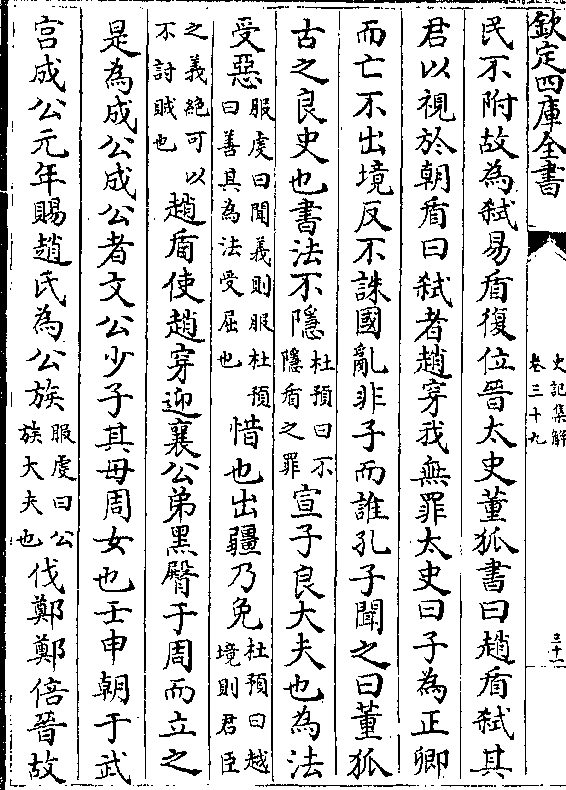 欽定四庫全書
史記集解
卷三十九
三十二
民不附故為弑易盾復位晉太史董狐書曰趙盾弑其
君以視於朝盾曰弑者趙穿我無罪太史曰子為正卿
而亡不出境反不誅國亂非子而誰孔子聞之曰董狐
古之良史也書法不隱杜預曰不隱盾之罪宣子良大夫也為法
受惡服虔曰聞義則服杜預曰善其為法受屈也惜也出疆乃免杜預曰越境則君臣
之義絶可以不討賊也趙盾使趙穿迎襄公弟黑臀于周而立之
是為成公成公者文公少子其母周女也壬申朝于武
宫成公元年賜趙氏為公族服虔曰公族大夫也伐鄭鄭倍晉故